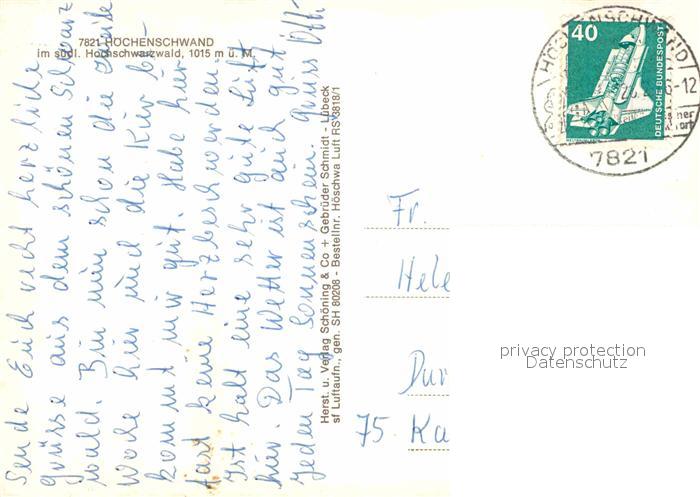 7821 HÖCHENSCHWAND
im südl. Hochschwarzwald, 1015 m ü. M.
Sende Euch recht herzliche
grüsse aus dem schönen Schwarz
wald. Bin nun schon die zweite
Woche hier und die Kur be-
kommt mir gut. Habe hier
fast keine Herzbeschwerden.
Ist halt eine sehr gute Luft
hier. Das Wetter ist auch gut
jeden Tag Sonnenschein. Gruss
Herst. u. Verlag Schöning & Co + Gebrüder Schmidt - Lübeck
sf Luftaufn., gen. SH 80208 - Bestellnr. Höschwa Luft RS 3818/1
HÖCHENSCHWAND
40
DEUTSCHE BUNDESPOST
-12
7821
Fr.
Hele
Dur
75 Ka
privacy protection
Datenschutz